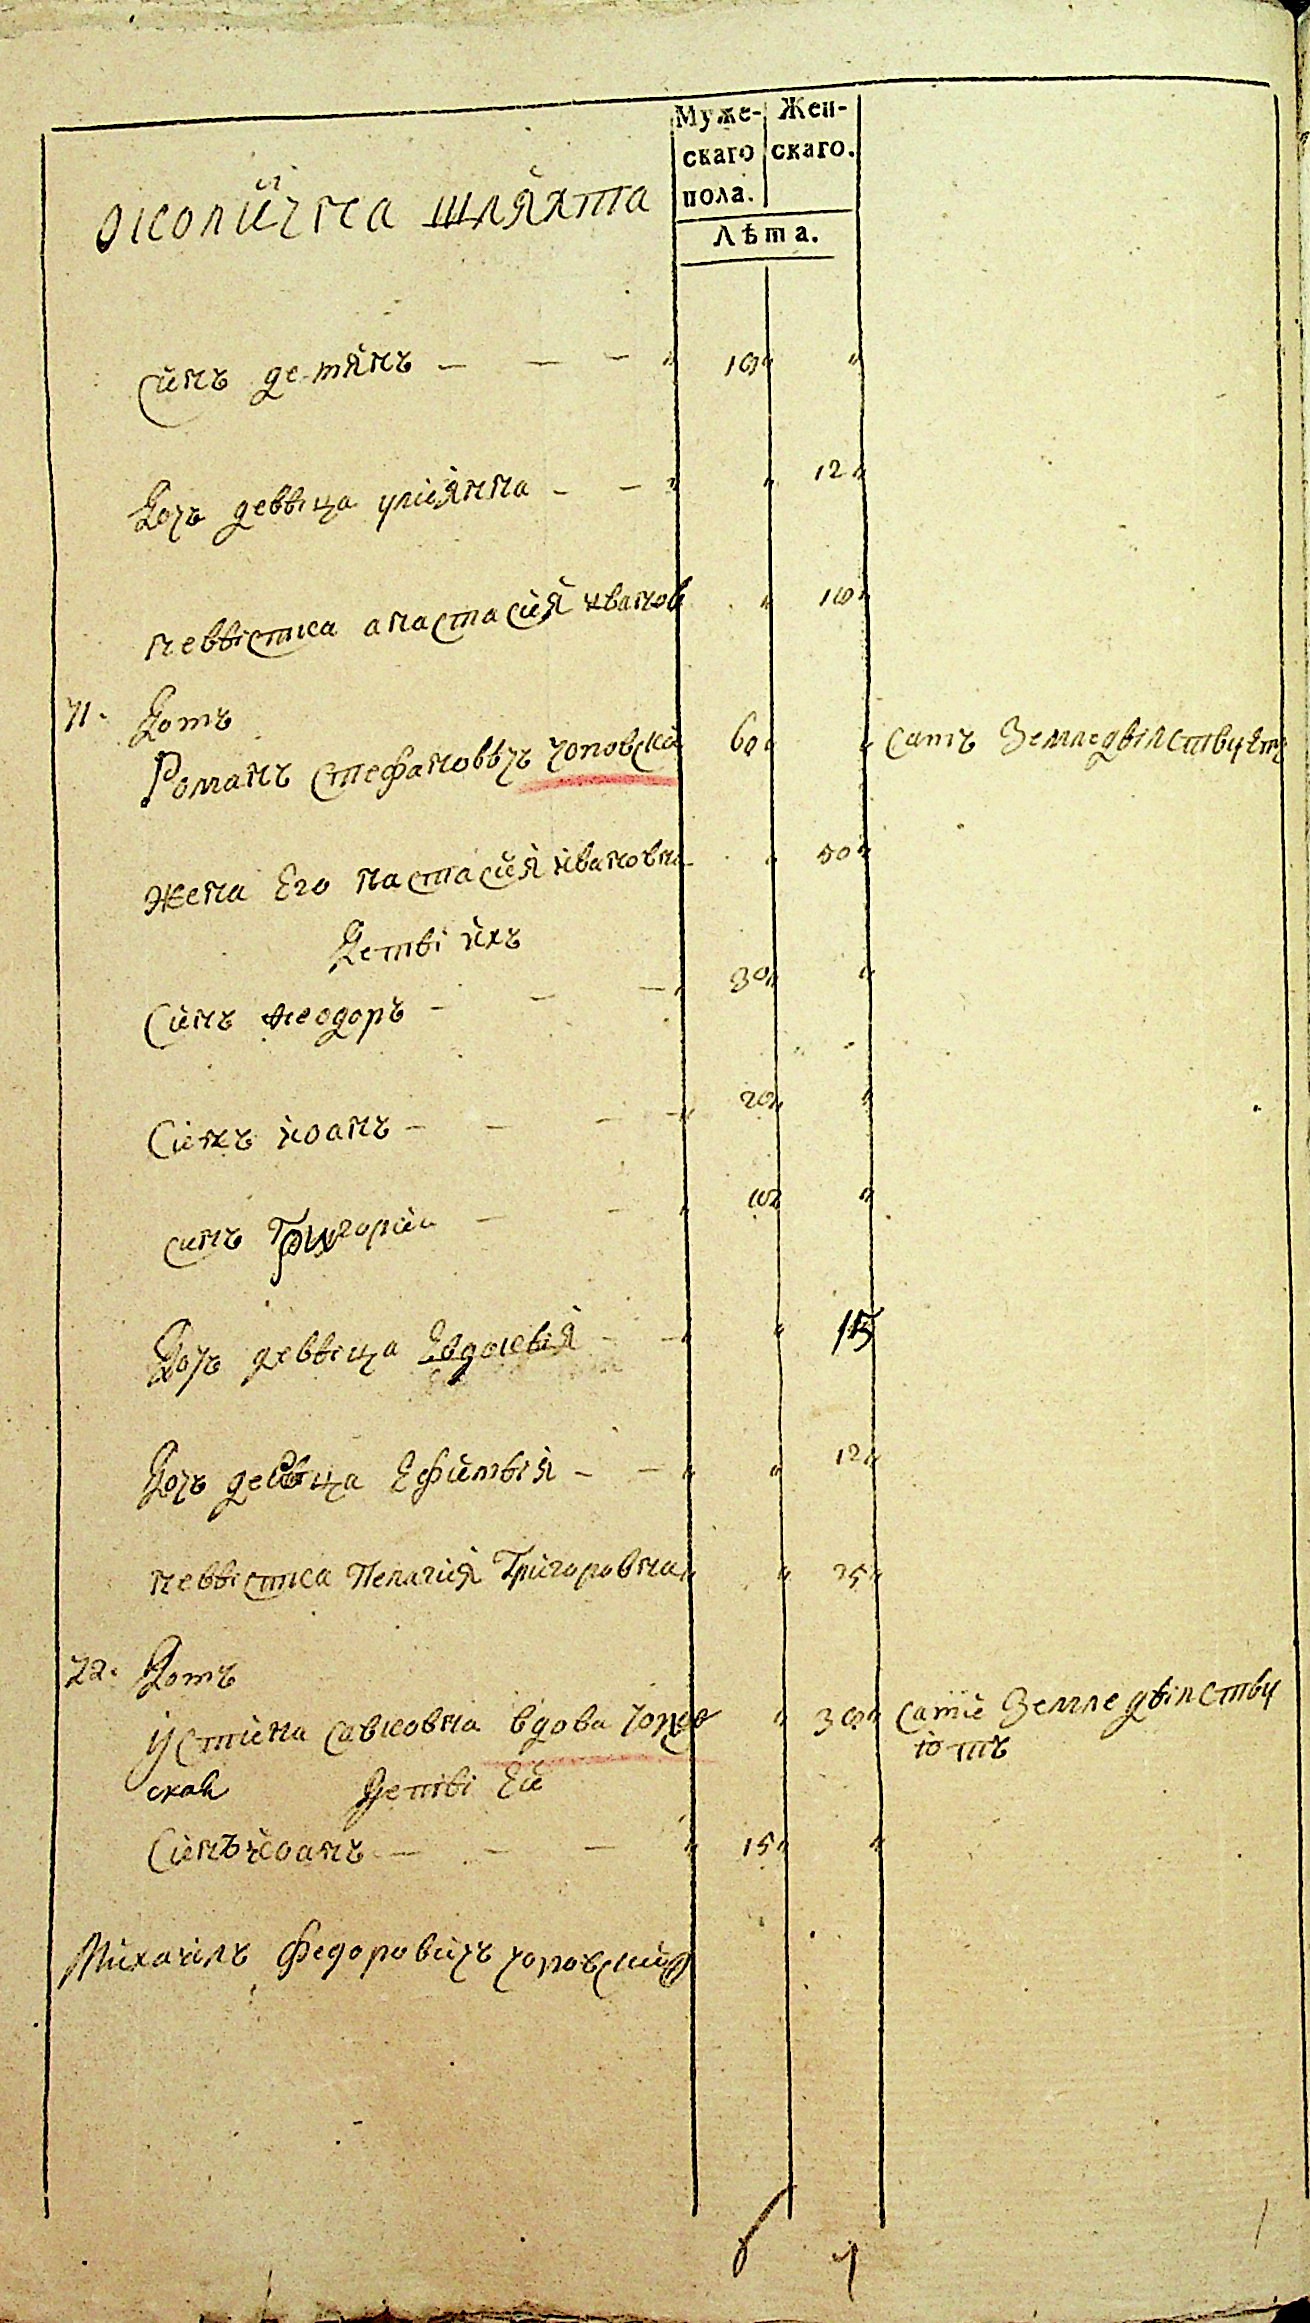 Муже- Жен-
скаго скаго.
пола.
Лѣта.
околична шляхта
синъ демянъ — — — " 10 " "
Дочь девѣца улиянна — — " " 12 "
невѣстка анастасия иванов " 10 "
71. Домъ
Романъ стефановѣчъ чоповски 60 " " самъ земледѣлствуетъ
жена Его настасия ивановна " 50 "
Детѣ ихъ
Синъ феодоръ — — — " 30 " "
Синъ иоанъ — — — " 20 " "
синъ Григории — — " 10 " "
Дочь девѣца Евдокѣя — — " " 15
Дочь девѣца Ефимѣя — — " " 12 "
невѣстка Пелагия Григоровна " " 25 "
72. Домъ
Устина савковна вдова чопов " 30 " сами земледѣлству
ская Детѣ Еи ютъ
Синъ иоанъ — — — " 15 " "
Михаилъ Федоровичъ чоповский